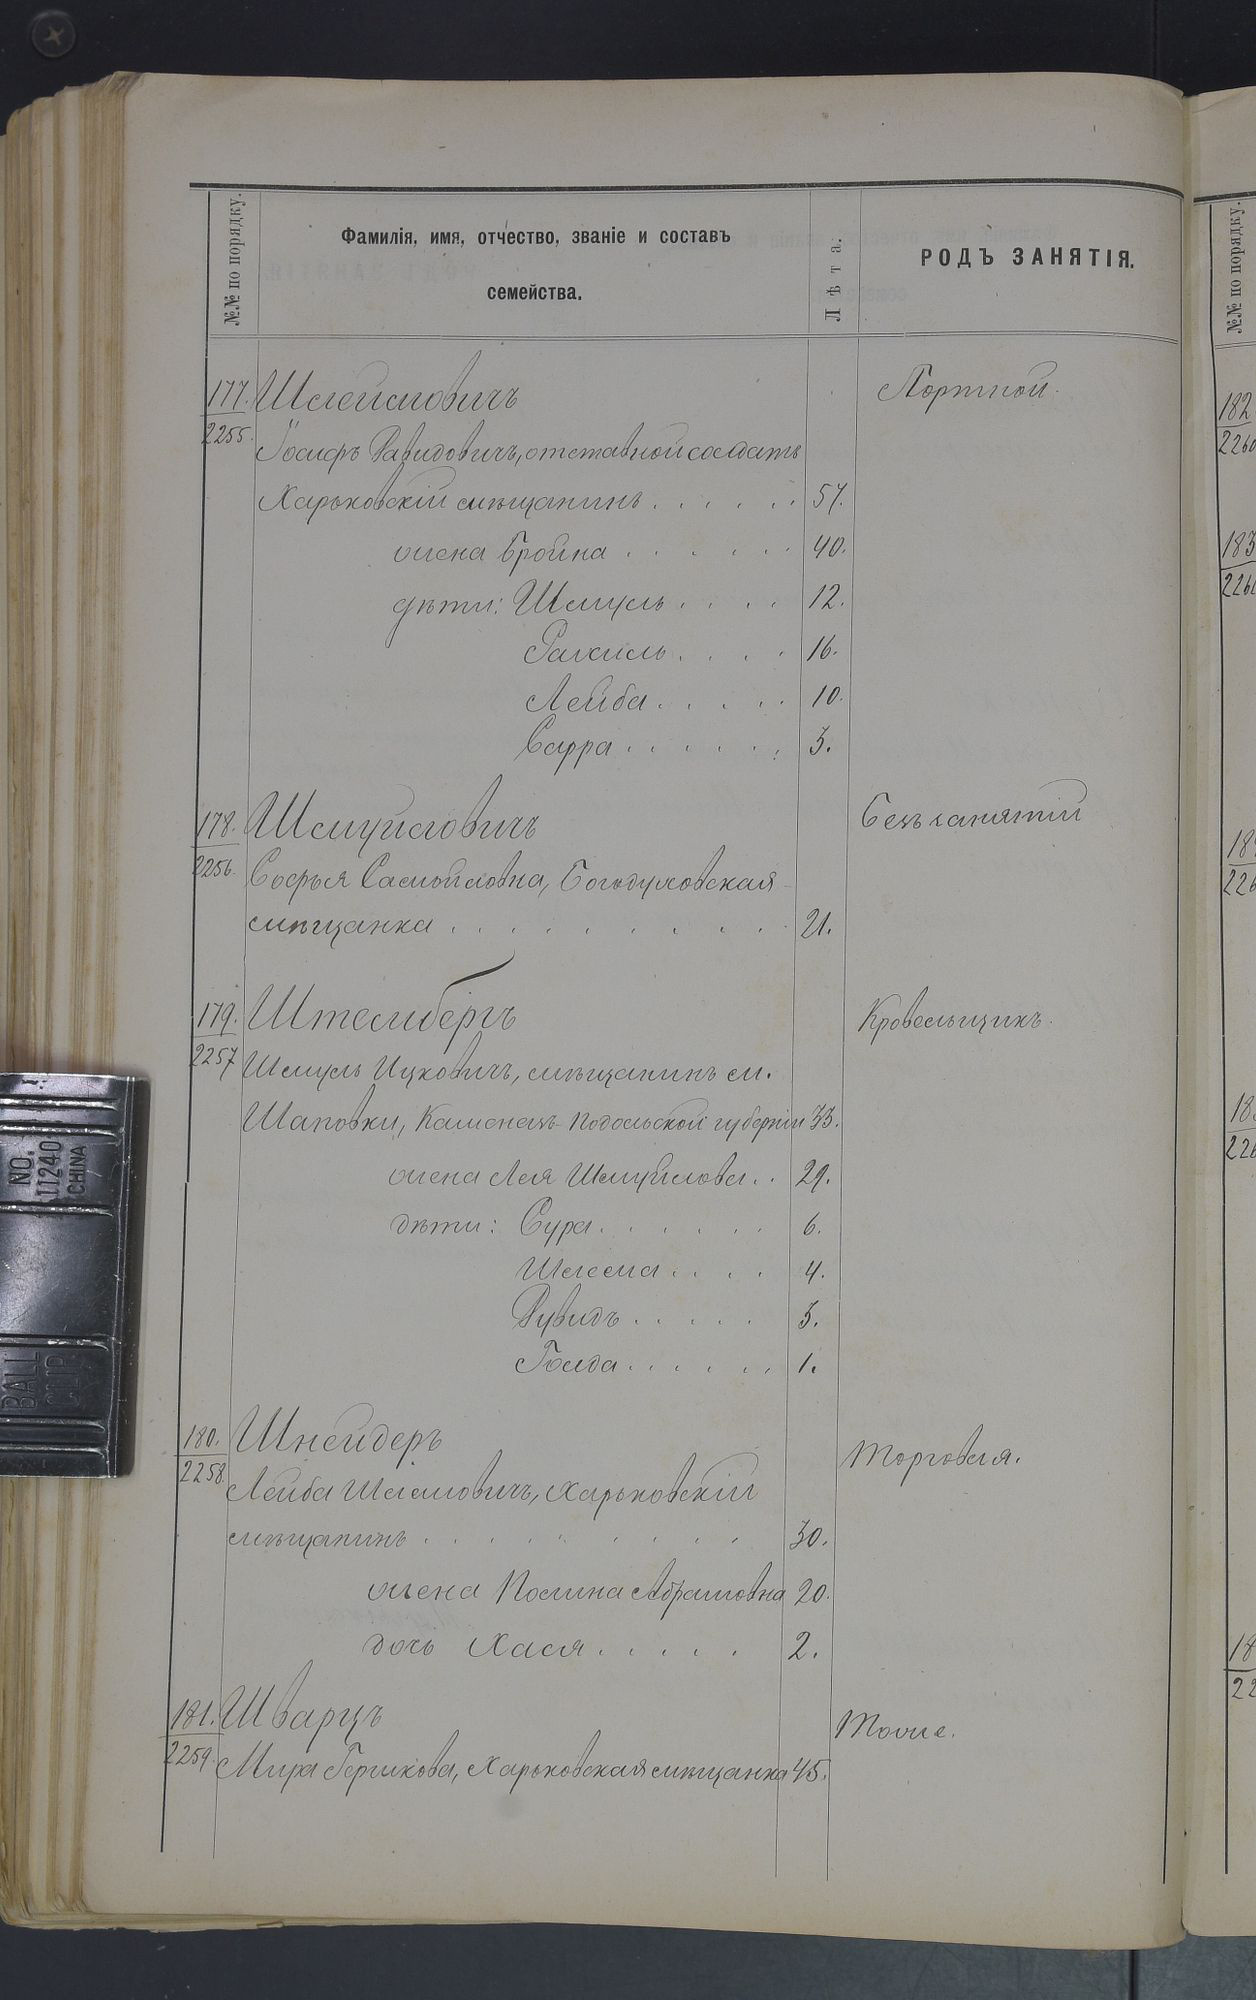 №№ по порядку.
Фамилія, имя, отчество, званіе и составъ
семейства.
Лѣта.
РОДЪ ЗАНЯТІЯ.
177. Шлеймовичъ Портной.
2255.
Іосифъ Давидовичъ, отставной солдатъ
Харьковскій мѣщанинъ 57.
жена Бройна 40.
дѣти: Шмуль 12.
Рахиль 16.
Лейба 10.
Сарра 3.
178. Шмуйловичъ Безъ занятій
2256.
Софья Самойловна, Богодуховская
мѣщанка 21.
179. Штелмбергъ Кровельщикъ.
2257
Шмуль Ицковичъ, мѣщанинъ м.
Шаповки, Каменецъ-Подольской губерніи 33.
жена Лея Шмуйлова 29.
дѣти: Сура 6.
Шлема 4.
Дувидъ 3.
Голда 1.
180. Шнейдеръ Торговля.
2258.
Лейба Шлемовичъ, Харьковскій
мѣщанинъ 30.
жена Полина Абрамовна 20.
дочь Хася 2.
181. Шварцъ Тоже.
2259.
Мира Гершкова, Харьковская мѣщанка 45.
№№ по порядку.
182
2260
183
2261
NO.
11240
CHINA
BALL
CLIP